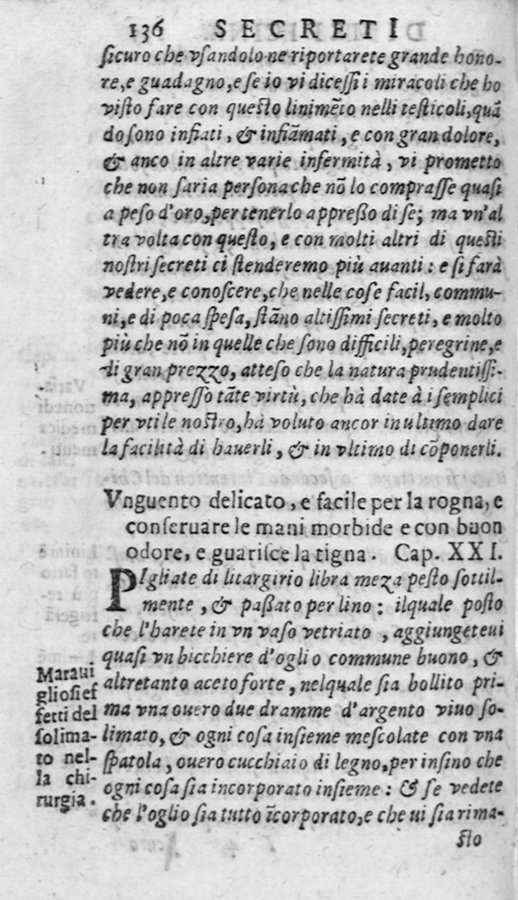 136 SECRETI
sicuro che vsandolo ne riportarete grande hono-
re, e guadagno, e se io vi dicessi i miracoli che ho
visto fare con questo linimẽto nelli testicoli, quã
do sono infiati, & infiãmati, e con gran dolore,
& anco in altre varie infermità, vi prometto
che non saria persona che nõ lo comprasse quasi
a peso d'oro, per tenerlo appresso di se; ma vn'al
tra volta con questo, e con molti altri di questi
nostri secreti ci stenderemo più auanti: e si farà
vedere, e conoscere, che nelle cose facil, commu-
ni, e di poca spesa, stãno altissimi secreti, e molto
più che nõ in quelle che sono difficili, peregrine, e
di gran prezzo, atteso che la natura prudentissi-
ma, appresso tãte virtù, che hà date à i semplici
per vtile nostro, hà voluto ancor in ultimo dare
la facilità di hauerli, & in vltimo di cõponerli.
Vnguento delicato, e facile per la rogna, e
conseruare le mani morbide e con buon
odore, e guarisce la tigna. Cap. XXI.
PIgliate di litargirio libra meza pesto sottil-
mente, & passato per lino: ilquale posto
che l'harete in vn vaso vetriato, aggiungeteui
quasi vn bicchiere d'oglio commune buono, &
altretanto aceto forte, nelquale sia bollito pri-
ma vna ouero due dramme d'argento viuo so-
limato, & ogni cosa insieme mescolate con vna
spatola, ouero cucchiaio di legno, per insino che
ogni cosa sia incorporato insieme: & se vedete
che l'oglio sia tutto ĩcorporato, e che ui sia rima-
sto
Maraui
gliosi ef
fetti del
solima-
to nel-
la chi-
rurgia.